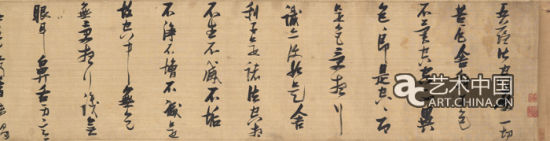 五蘊皆空度一切
苦厄舍利子色
不異空空不異
色即是空空即
是色受想行
識亦復如是舍
利子是諸法空相
不生不滅不垢
不淨不增不減是
故空中無色
無受想行識無
眼耳鼻舌身意
艺术中国
ART.CHINA.CN